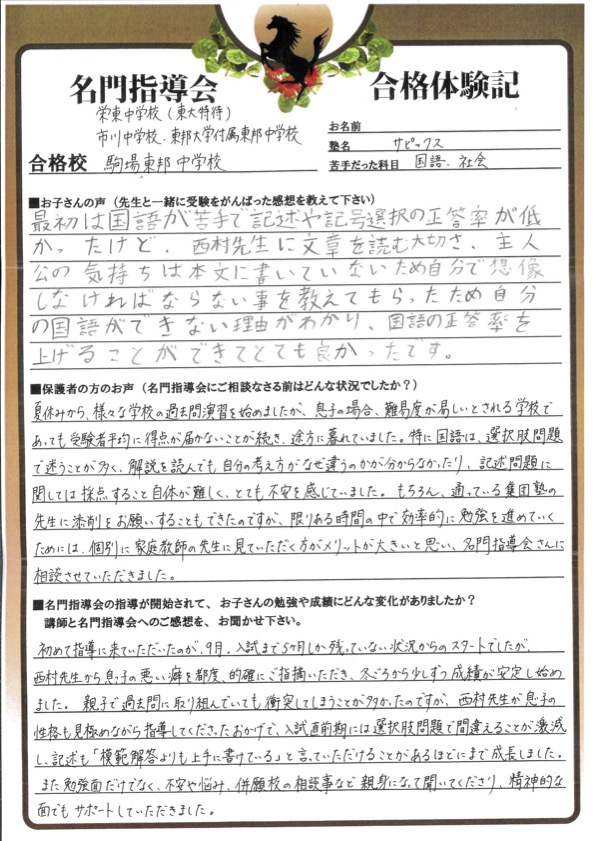 名門指導会
合格体験記
栄東中学校（東大特待）
市川中学校、東邦大学付属東邦中学校
合格校 駒場東邦中学校
お名前
塾名 サピックス
苦手だった科目 国語、社会
■お子さんの声（先生と一緒に受験をがんばった感想を教えて下さい）
最初は国語が苦手で記述や記号選択の正答率が低
かったけど、西村先生に文章を読む大切さ、主人
公の気持ちは本文に書いていないため自分で想像
しなければならない事を教えてもらったため自分
の国語ができない理由がわかり、国語の正答率を
上げることができてとても良かったです。
■保護者の方のお声（名門指導会にご相談なさる前はどんな状況でしたか？）
夏休みから、様々な学校の過去問演習を始めましたが、息子の場合、難易度が易しいとされる学校で
あっても受験者平均に得点が届かないことが続き、途方に暮れていました。特に国語は、選択肢問題
で迷うことが多く、解説を読んでも自分の考え方がなぜ違うのかが分からなかったり、記述問題に
関しては採点すること自体が難しく、とても不安を感じていました。もちろん、通っている集団塾の
先生に添削をお願いすることもできたのですが、限りある時間の中で効率的に勉強を進めていく
ためには、個別に家庭教師の先生に見ていただく方がメリットが大きいと思い、名門指導会さんに
相談させていただきました。
■名門指導会の指導が開始されて、お子さんの勉強や成績にどんな変化がありましたか？
講師と名門指導会へのご感想を、お聞かせ下さい。
初めて指導に来ていただいたのが、9月。入試まで5ヶ月しか残っていない状況からのスタートでしたが、
西村先生から息子の悪い癖を都度、的確にご指摘いただき、冬ごろから少しずつ成績が安定し始め
ました。親子で過去問に取り組んでいても衝突してしまうことが多かったのですが、西村先生が息子の
性格も見極めながら指導してくださったおかげで、入試直前期には選択肢問題で間違えることが激減
し、記述も「模範解答よりも上手に書けている」と言っていただけることがあるほどにまで成長しました。
また勉強面だけでなく、不安や悩み、併願校の相談事など親身になって聞いてくださり、精神的な
面でもサポートしていただきました。